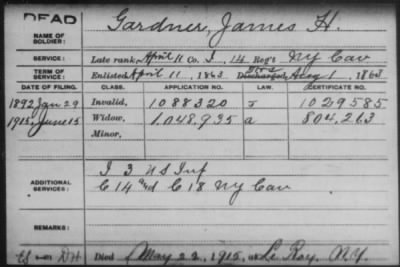 DEAD
NAME OF SOLDIER: Gardner, James H.
SERVICE: Late rank, April 11 Co. I, 14 Reg't NY Cav
TERM OF SERVICE: Enlisted April 11, 1863 Discharged, Aug 1, 1863
DATE OF FILING. CLASS. APPLICATION NO. LAW. CERTIFICATE NO.
1892, Jan 29 Invalid, 1088320 1029585
1915, June 15 Widow, 1048,935 a 804,263
Minor,
ADDITIONAL SERVICES: I 3 US Inf
C 14 and C 18 NY Cav
REMARKS:
Died May 22, 1915, at Le Roy, N.Y.